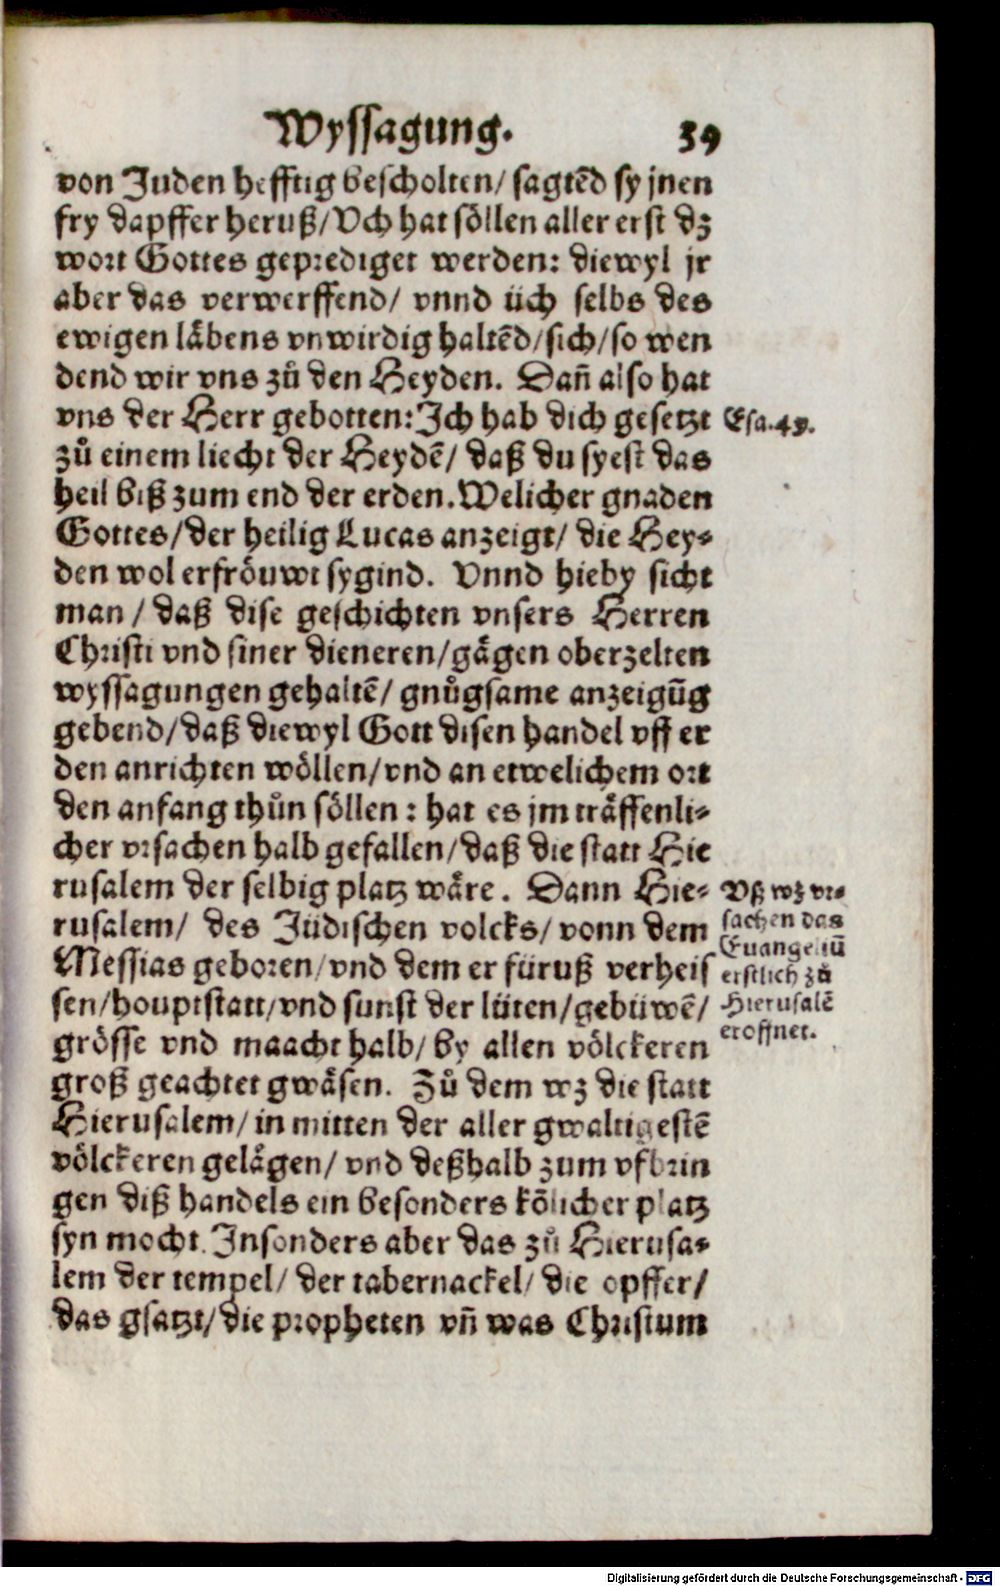 Wyssagung. 39
von Juden hefftig bescholten/ sagtēd sy jnen
fry dapffer heruß/ Vch hat söllen aller erst dz
wort Gottes geprediget werden: diewyl jr
aber das verwerffend/ vnnd üch selbs des
ewigen läbens vnwirdig haltēd/sich/so wen
dend wir vns zů den Heyden. Dañ also hat
vns der Herr gebotten: Ich hab dich gesetzt
Esa.49.
zů einem liecht der Heydē/ daß du syest das
heil biß zum end der erden. Welicher gnaden
Gottes/der heilig Lucas anzeigt/ die Hey-
den wol erfröuwt sygind. Vnnd hieby sicht
man/ daß dise geschichten vnsers Herren
Christi vnd siner dieneren/gägen oberzelten
wyssagungen gehaltē/ gnůgsame anzeigūg
gebend/daß diewyl Gott disen handel vff er
den anrichten wöllen/vnd an etwelichem ort
den anfang thůn söllen: hat es jm träffenli-
cher vrsachen halb gefallen/daß die statt Hie
rusalem der selbig platz wäre. Dann Hie-
rusalem/ des Jüdischen volcks/ vonn dem
Messias geboren/vnd dem er füruß verheis
sen/houptstatt/vnd sunst der lüten/gebüwē/
grösse vnd maacht halb/ by allen völckeren
groß geachtet gwäsen. Zů dem wz die statt
Hierusalem/ in mitten der aller gwaltigestē
völckeren gelägen/ vnd deßhalb zum vfbrin
gen diß handels ein besonders kölicher platz
syn mocht. Insonders aber das zů Hierusa-
lem der tempel/ der tabernackel/ die opffer/
das gsatzt/die propheten vñ was Christum
Vß wz vr-
sachen das
Euangeliū
erstlich zů
Hierusalē
eroffnet.
Digitalisierung gefördert durch die Deutsche Forschungsgemeinschaft - DFG